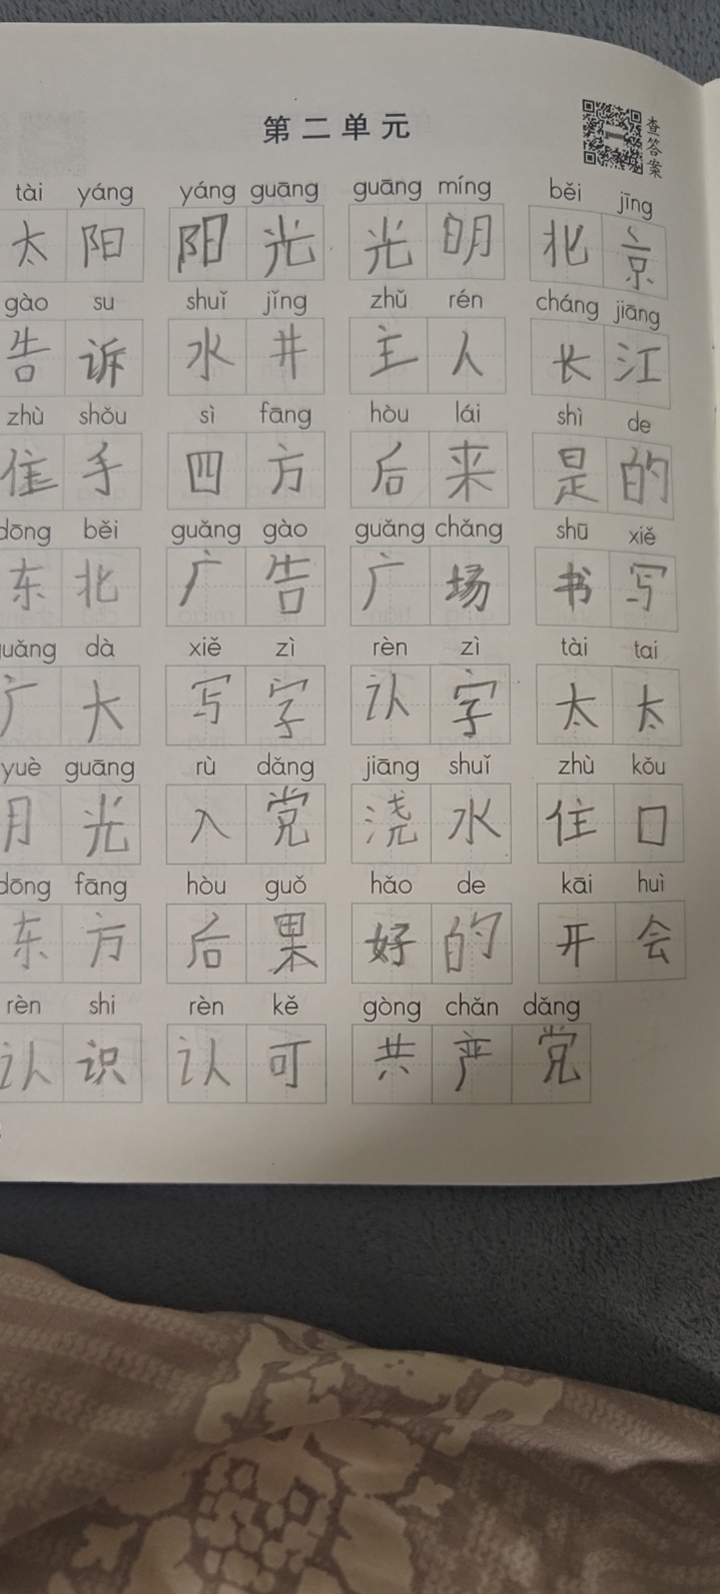 第二单元
查答案
tài yáng yáng guāng guāng míng běi jīng
太阳 阳光 光明 北京
gào su shuǐ jǐng zhǔ rén cháng jiāng
告诉 水井 主人 长江
zhù shǒu sì fāng hòu lái shì de
住手 四方 后来 是的
dōng běi guǎng gào guǎng chǎng shū xiě
东北 广告 广场 书写
uǎng dà xiě zì rèn zì tài tai
广大 写字 认字 太太
yuè guāng rù dǎng jiāng shuǐ zhù kǒu
月光 入党 浇水 住口
dōng fāng hòu guǒ hǎo de kāi huì
东方 后果 好的 开会
rèn shi rèn kě gòng chǎn dǎng
认识 认可 共产党